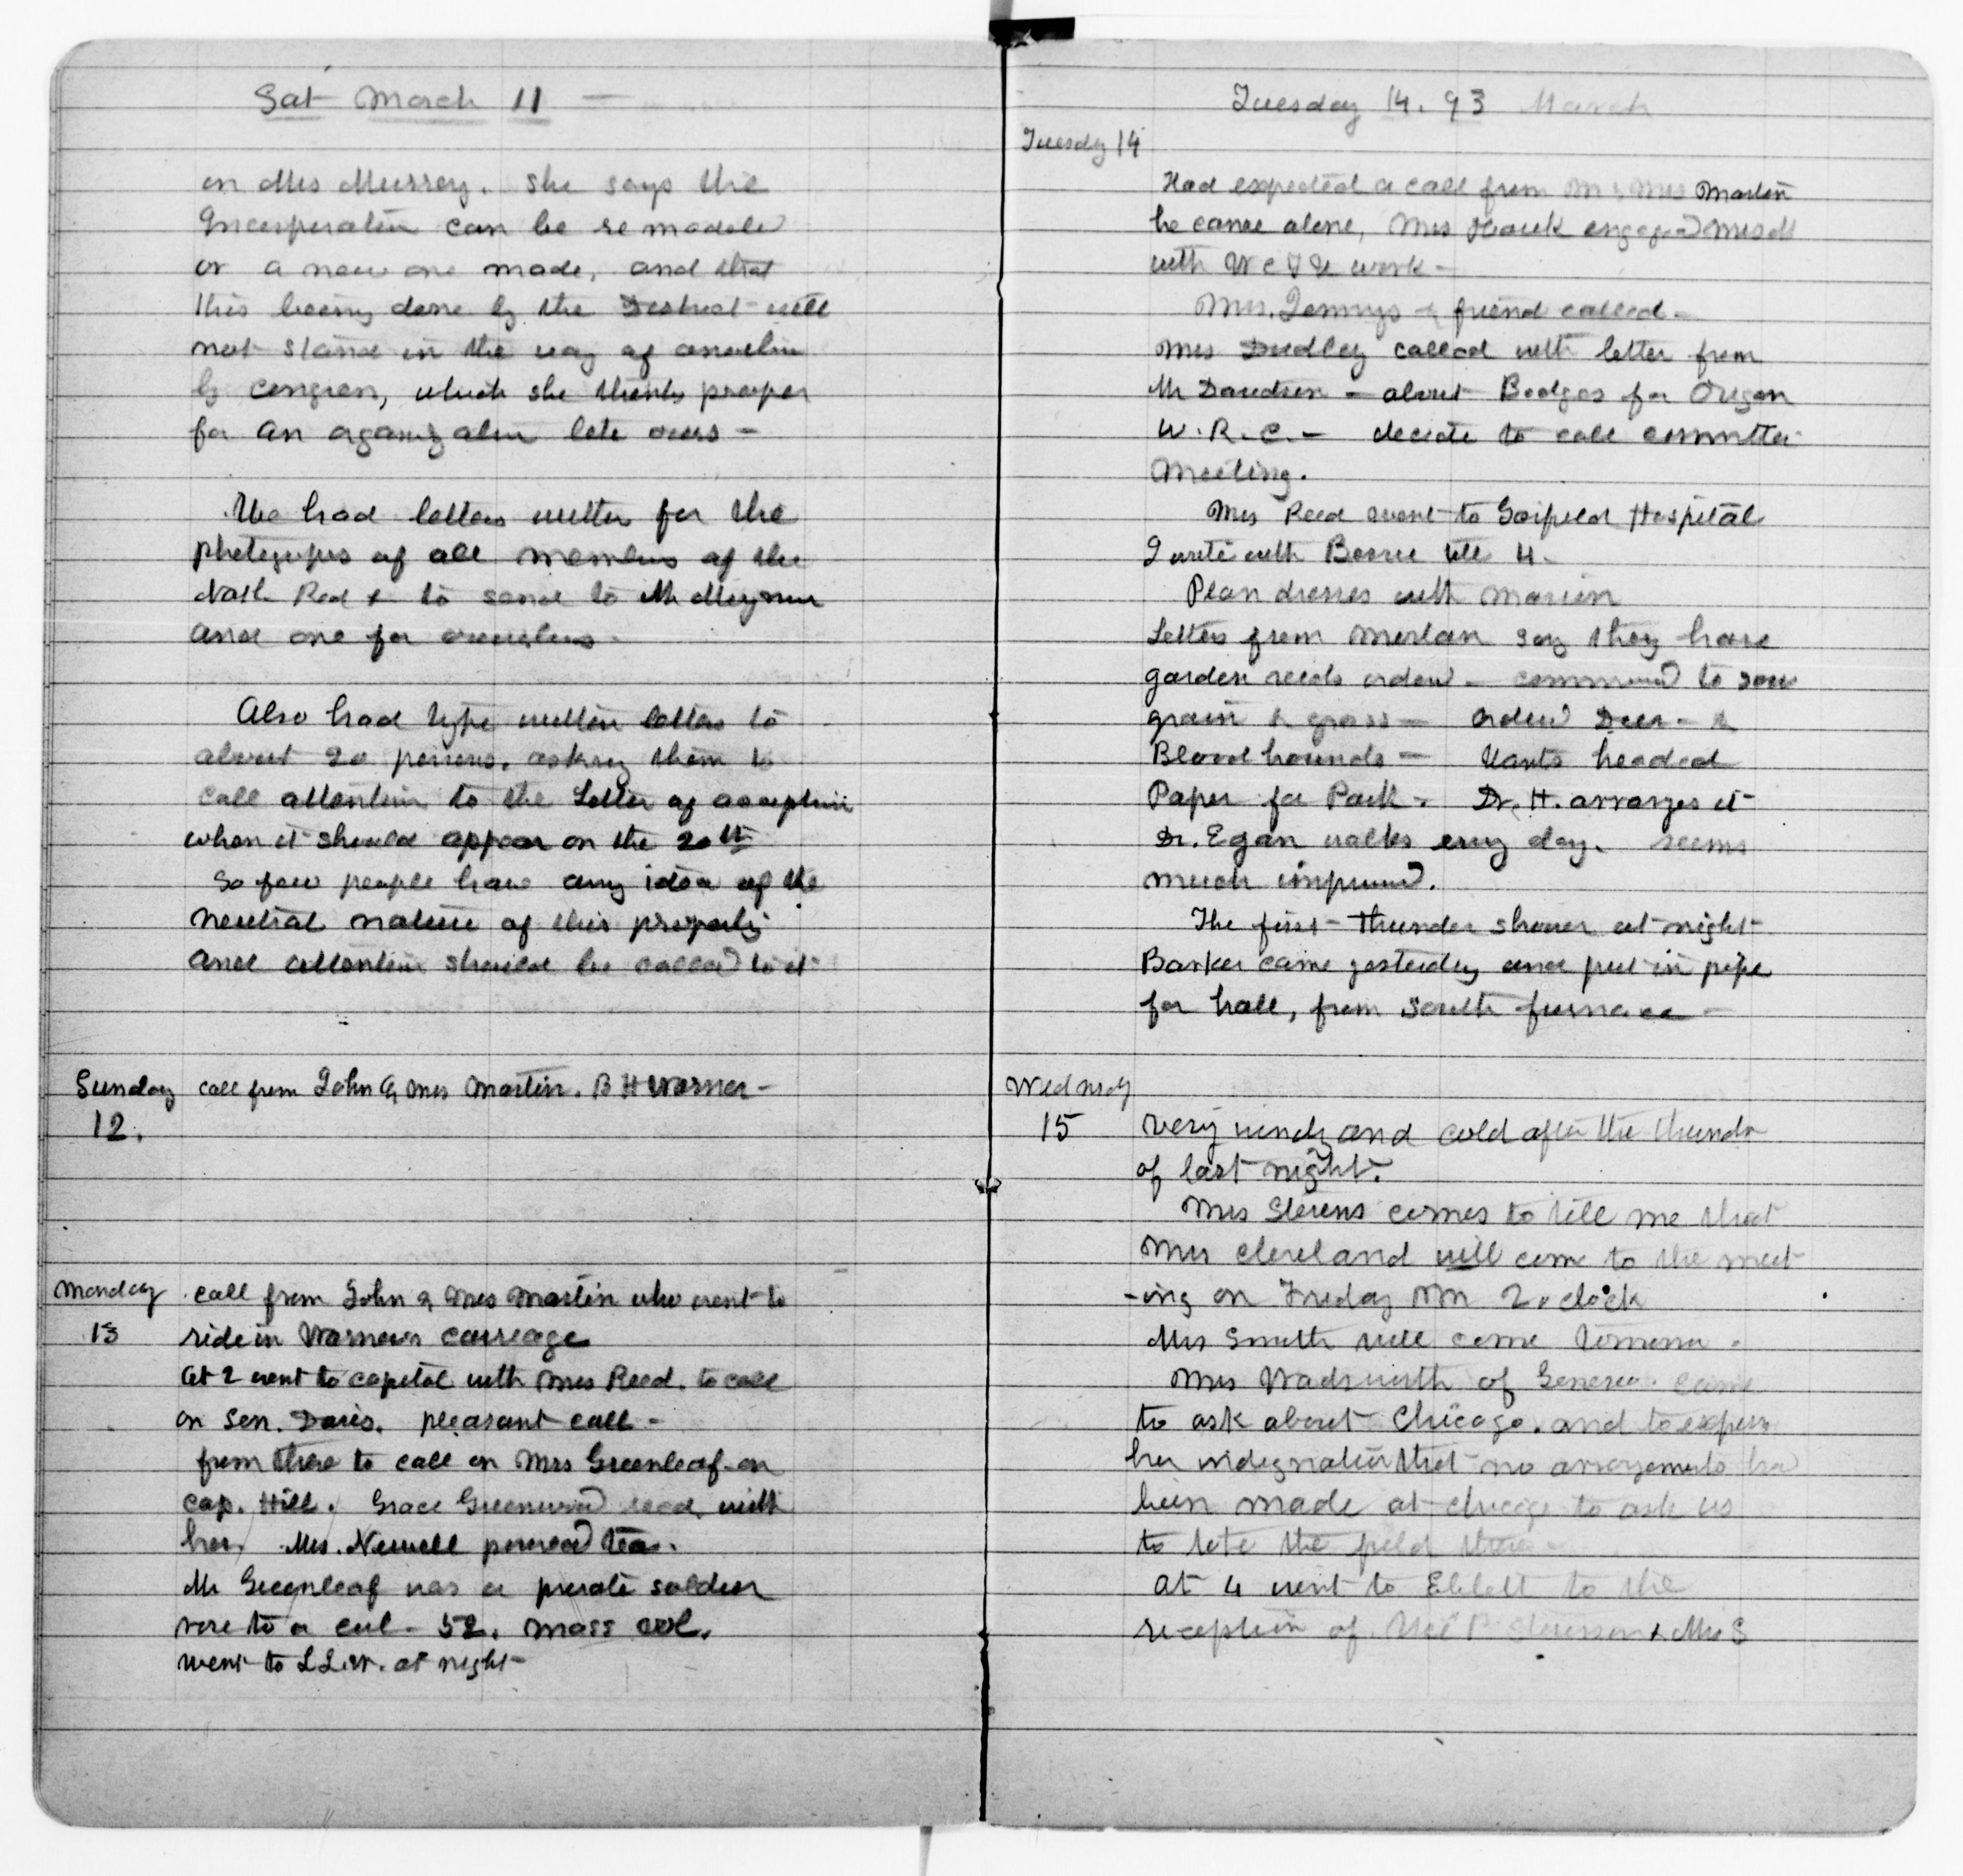 Sat March 11 —
on Mrs Murrey. She says the
Incorporation can be re modeled
or a new one made, and that
this being done by the District will
not stand in the way of another
by congress, which she thinks proper
for an organization like ours —
We had letters written for the
photographs of all members of the
Natl. Red + to send to Mr
and one for ourselves -
Also had type written letters to
about 20 persons, asking them to
call attention to the Letter of acceptance
when it should appear on the 20th
So few people have any idea of the
neutral nature of this property
and attention should be called to it
Sunday call from John & Mrs Martin. B H Warner —
12.
Monday call from John & Mrs Martin who went to
13 ride in Warners carreage
at 2 went to capitol with Mrs Reed. to call
on Sen. Davis. pleasant call -
from there to call on Mrs Greenleaf - on
Cap. Hill. Grace Greenwood read with
her. Mrs. Newell poured tea.
Mr Greenleaf was a private soldier
rose to a col - 52. Mass vol.
went to L L. W. at night -
Tuesday 14. 93 March
Tuesdy 14
Had expected a call from Mr & Mrs Martin
he came alone, Mrs Houk engaged
with W C T U work —
Mrs. Jennys & friend called —
Mrs Dudley called with letter from
Mr Davidson — about Badges for Oregon
W. R. C. — decide to call committee
meeting.
Mrs Reed went to Garfield Hospital
I write with till 4 -
Plan dresses with Marion
Letters from say they have
garden seeds ordered — commenced to sow
grain & grass — ordered Deer - &
Blood hounds — Wants headed
Paper for Park - Dr. H. arranges it
Dr. Egan walks every day. seems
much improved.
The first - thunder shower at night -
Barker came yesterday and put in pipe
for hall, from South furnace —
Wednsdy
15 very windy and cold after the thunder
of last night.
Mrs Stevens comes to tell me that
Mrs Cleveland will come to the meet
-ing on Friday 2. o clock
Mrs Smith will come tomorrow -
Mrs Wadsworth of Geneseo came
to ask about Chicago. and to express
her indignation that no arrangements had
been made at Chicago to ask us
to take the field there —
at 4 went to Ebbett to the
reception of Vice P Stevenson & Mrs S